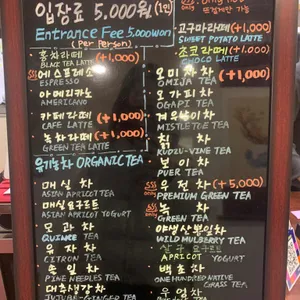 입장료 5.000원 (1인)
Entrance Fee 5.000won
(Per Person)
홍차라떼 (+1,000)
BLACK TEA LATTE
에스프레소
ESPRESSO
아메리카노
AMERICANO
카페라떼 (+1,000)
CAFE LATTE
녹차라떼 (+1,000)
GREEN TEA LATTE
유기농차 ORGANIC TEA
매실차
ASIAN APRICOT TEA
매실요구르트
ASIAN APRICOT YOGURT
모과차
QUINCE TEA
유자차
CITRON TEA
솔잎차
PINE NEEDLES TEA
대추생강차
JUJUBE-GINGER TEA
고구마라떼 (+1,000)
SWEET POTATO LATTE
초코라떼 (+1,000)
CHOCO LATTE
오미자차 (+1,000)
OMIJA TEA
오가피차
OGAPI TEA
겨우살이차
MISTLETOE TEA
칡차
KUDZU-VINE TEA
보이차
PUER TEA
우전차 (+5,000)
PREMIUM GREEN TEA
녹차
GREEN TEA
야생산뽕잎차
WILD MULBERRY TEA
살구요구르트
APRICOT YOGURT
백초차
ONE HUNDRED NATIVE
GRASS TEA